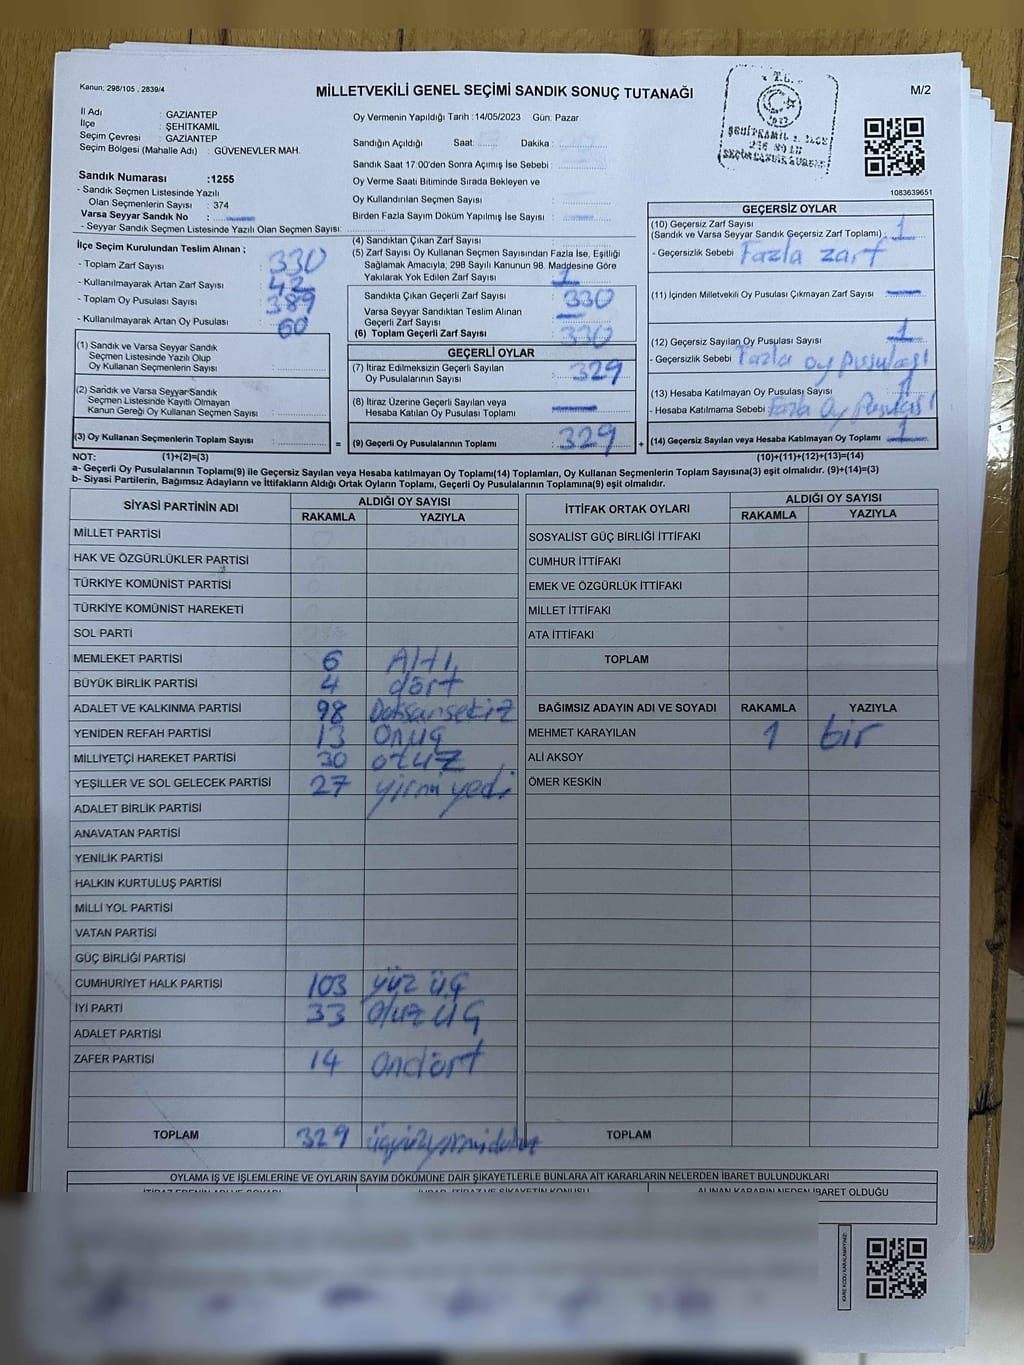 Kanun; 298/105 , 2839/4
MİLLETVEKİLİ GENEL SEÇİMİ SANDIK SONUÇ TUTANAĞI
M/2
İl Adı : GAZİANTEP
İlçe : ŞEHİTKAMİL
Seçim Çevresi : GAZİANTEP
Seçim Bölgesi (Mahalle Adı) : GÜVENEVLER MAH.
Oy Vermenin Yapıldığı Tarih : 14/05/2023 Gün: Pazar
Sandığın Açıldığı Saat: Dakika :
Sandık Saat 17:00'den Sonra Açımış İse Sebebi :
Oy Verme Saati Bitiminde Sırada Bekleyen ve
Oy Kullandırılan Seçmen Sayısı :
Birden Fazla Sayım Döküm Yapılmış İse Sayısı :
T.C.
1083639651
Sandık Numarası :1255
- Sandık Seçmen Listesinde Yazılı
Olan Seçmenlerin Sayısı : 374
Varsa Seyyar Sandık No :
- Seyyar Sandık Seçmen Listesinde Yazılı Olan Seçmen Sayısı:
İlçe Seçim Kurulundan Teslim Alınan ;
- Toplam Zarf Sayısı : 330
- Kullanılmayarak Artan Zarf Sayısı : 42
- Toplam Oy Pusulası Sayısı : 389
- Kullanılmayarak Artan Oy Pusulası : 60
(1) Sandık ve Varsa Seyyar Sandık
Seçmen Listesinde Yazılı Olup
Oy Kullanan Seçmenlerin Sayısı :
(2) Sandık ve Varsa Seyyar Sandık
Seçmen Listesinde Kayıtlı Olmayan
Kanun Gereği Oy Kullanan Seçmen Sayısı :
(3) Oy Kullanan Seçmenlerin Toplam Sayısı :
(4) Sandıktan Çıkan Zarf Sayısı :
(5) Zarf Sayısı Oy Kullanan Seçmen Sayısından Fazla İse, Eşitliği
Sağlamak Amacıyla, 298 Sayılı Kanunun 98. Maddesine Göre
Yakılarak Yok Edilen Zarf Sayısı : 1
Sandıkta Çıkan Geçerli Zarf Sayısı : 330
Varsa Seyyar Sandıktan Teslim Alınan
Geçerli Zarf Sayısı :
(6) Toplam Geçerli Zarf Sayısı : 330
GEÇERLİ OYLAR
(7) İtiraz Edilmeksizin Geçerli Sayılan
Oy Pusulalarının Sayısı : 329
(8) İtiraz Üzerine Geçerli Sayılan veya
Hesaba Katılan Oy Pusulası Toplamı :
= (9) Geçerli Oy Pusulalarının Toplamı : 329 +
GEÇERSİZ OYLAR
(10) Geçersiz Zarf Sayısı
(Sandık ve Varsa Seyyar Sandık Geçersiz Zarf Toplamı) : 1
- Geçersizlik Sebebi : Fazla zarf
(11) İçinden Milletvekili Oy Pusulası Çıkmayan Zarf Sayısı :
(12) Geçersiz Sayılan Oy Pusulası Sayısı : 1
- Geçersizlik Sebebi : Fazla oy pusulası
(13) Hesaba Katılmayan Oy Pusulası Sayısı : 1
- Hesaba Katılmama Sebebi : Fazla Oy Pusulası
(14) Geçersiz Sayılan veya Hesaba Katılmayan Oy Toplamı : 1
NOT: (1)+(2)=(3)
(10)+(11)+(12)+(13)=(14)
a- Geçerli Oy Pusulalarının Toplamı(9) ile Geçersiz Sayılan veya Hesaba katılmayan Oy Toplamı(14) Toplamları, Oy Kullanan Seçmenlerin Toplam Sayısına(3) eşit olmalıdır. (9)+(14)=(3)
b- Siyasi Partilerin, Bağımsız Adayların ve İttifakların Aldığı Ortak Oyların Toplamı, Geçerli Oy Pusulalarının Toplamına(9) eşit olmalıdır.
SİYASİ PARTİNİN ADI ALDIĞI OY SAYISI
RAKAMLA YAZIYLA
MİLLET PARTİSİ
HAK VE ÖZGÜRLÜKLER PARTİSİ
TÜRKİYE KOMÜNİST PARTİSİ
TÜRKİYE KOMÜNİST HAREKETİ
SOL PARTİ
MEMLEKET PARTİSİ 6 Altı
BÜYÜK BİRLİK PARTİSİ 4 dört
ADALET VE KALKINMA PARTİSİ 98 Doksansekiz
YENİDEN REFAH PARTİSİ 13 Onüç
MİLLİYETÇİ HAREKET PARTİSİ 30 otuz
YEŞİLLER VE SOL GELECEK PARTİSİ 27 yirmi yedi
ADALET BİRLİK PARTİSİ
ANAVATAN PARTİSİ
YENİLİK PARTİSİ
HALKIN KURTULUŞ PARTİSİ
MİLLİ YOL PARTİSİ
VATAN PARTİSİ
GÜÇ BİRLİĞİ PARTİSİ
CUMHURİYET HALK PARTİSİ 103 yüz üç
İYİ PARTİ 33 otuz üç
ADALET PARTİSİ
ZAFER PARTİSİ 14 Ondört
TOPLAM 329 üçyüzyirmidokuz
İTTİFAK ORTAK OYLARI ALDIĞI OY SAYISI
RAKAMLA YAZIYLA
SOSYALİST GÜÇ BİRLİĞİ İTTİFAKI
CUMHUR İTTİFAKI
EMEK VE ÖZGÜRLÜK İTTİFAKI
MİLLET İTTİFAKI
ATA İTTİFAKI
TOPLAM
BAĞIMSIZ ADAYIN ADI VE SOYADI RAKAMLA YAZIYLA
MEHMET KARAYILAN 1 bir
ALİ AKSOY
ÖMER KESKİN
TOPLAM
OYLAMA İŞ VE İŞLEMLERİNE VE OYLARIN SAYIM DÖKÜMÜNE DAİR ŞİKAYETLERLE BUNLARA AİT KARARLARIN NELERDEN İBARET BULUNDUKLARI
ALINAN KARARIN NEDEN İBARET OLDUĞU
KARE KODU KARALAMAYINIZ!